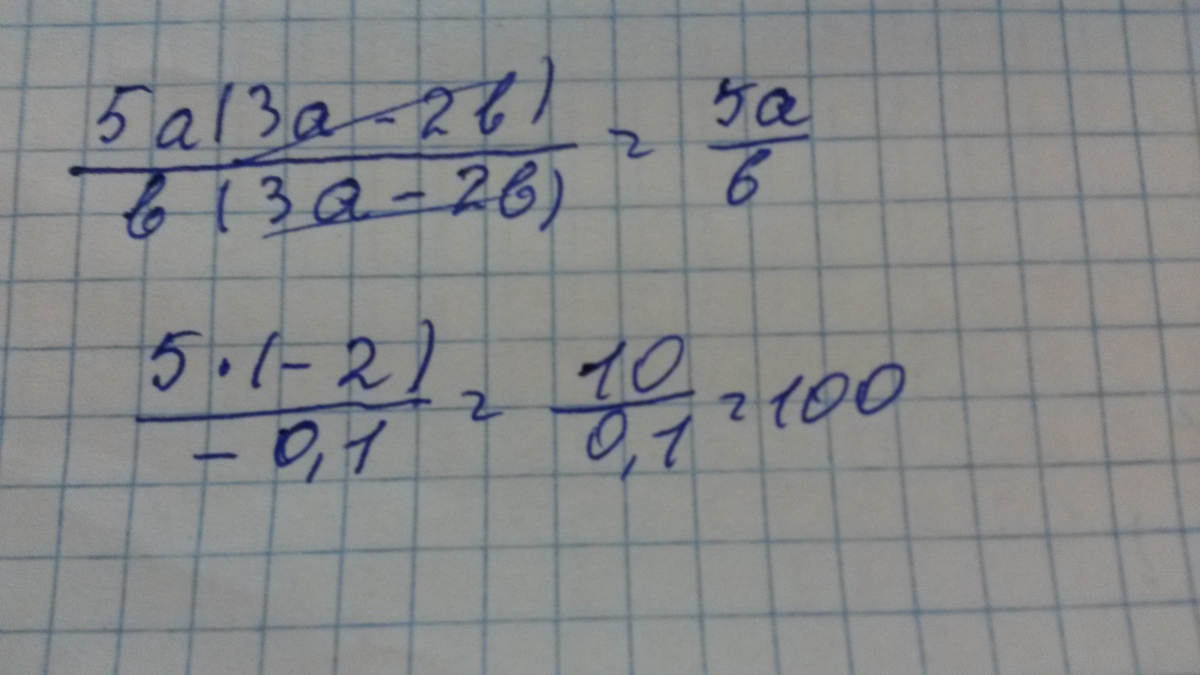 5a(3a-2b)/b(3a-2b) = 5a/b
5·(-2)/-0,1 = 10/0,1 = 100